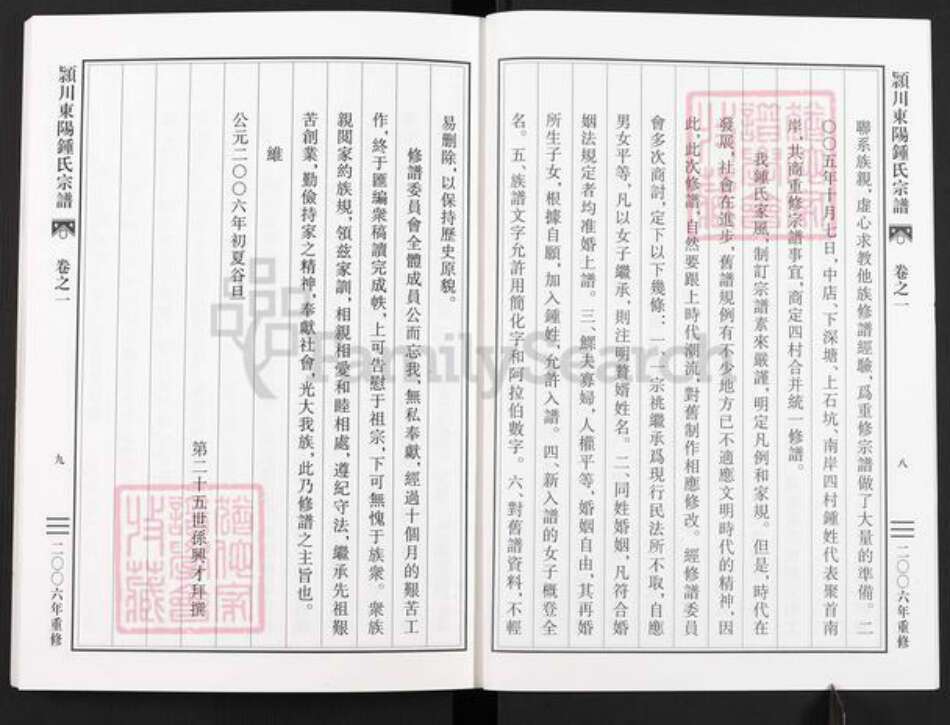 潁川東陽鍾氏宗譜
卷之一
八
二〇〇六年重修
聯系族親，虛心求教他族修譜經驗，爲重修宗譜做了大量的準備。二
〇〇五年十月七日，中店、下深塘、上石坑、南岸四村鍾姓代表聚首南
岸，共商重修宗譜事宜，商定四村合并統一修譜。
我鍾氏家風，制訂宗譜素來嚴謹，明定凡例和家規。但是，時代在
發展，社會在進步，舊譜規例有不少地方已不適應文明時代的精神，因
此，此次修譜，自然要跟上時代潮流，對舊制作相應修改。經修譜委員
會多次商討，定下以下幾條：一、宗祧繼承爲現行民法所不取，自應
男女平等，凡以女子繼承，則注明贅婿姓名。二、同姓婚姻，凡符合婚
姻法規定者均准婚上譜。三、鰥夫寡婦，人權平等，婚姻自由，其再婚
所生子女，根據自願，加入鍾姓，允許入譜。四、新入譜的女子概登全
名。五、族譜文字允許用簡化字和阿拉伯數字。六、對舊譜資料，不輕
易删除，以保持歷史原貌。
修譜委員會全體成員公而忘我、無私奉獻，經過十個月的艱苦工
作，終于匯編衆稿讀完成帙，上可告慰于祖宗，下可無愧于族衆。衆族
親閱家約族規，領兹家訓，相親相愛和睦相處，遵紀守法，繼承先祖艱
苦創業，勤儉持家之精神，奉獻社會，光大我族，此乃修譜之主旨也。
維
公元二〇〇六年初夏谷旦
第二十五世孫興才拜撰
潁川東陽鍾氏宗譜
卷之一
九
二〇〇六年重修
FamilySearch